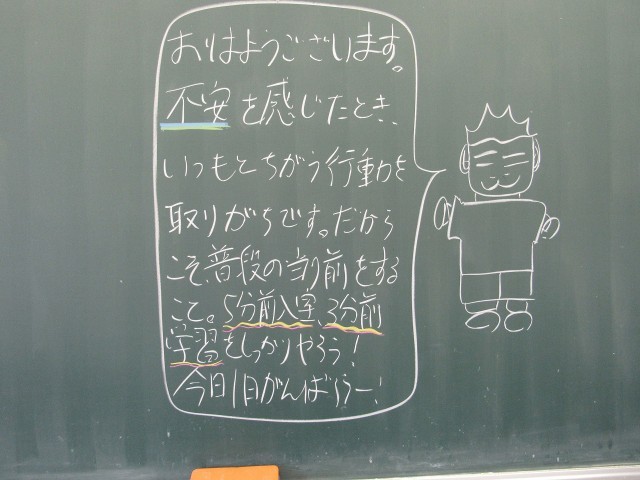 おはようございます。
不安を感じたとき、
いつもとちがう行動を
取りがちです。だから
こそ、普段の当り前をする
こと。5分前入室、3分前
学習をしっかりやろう!
今日1日がんばろうー!